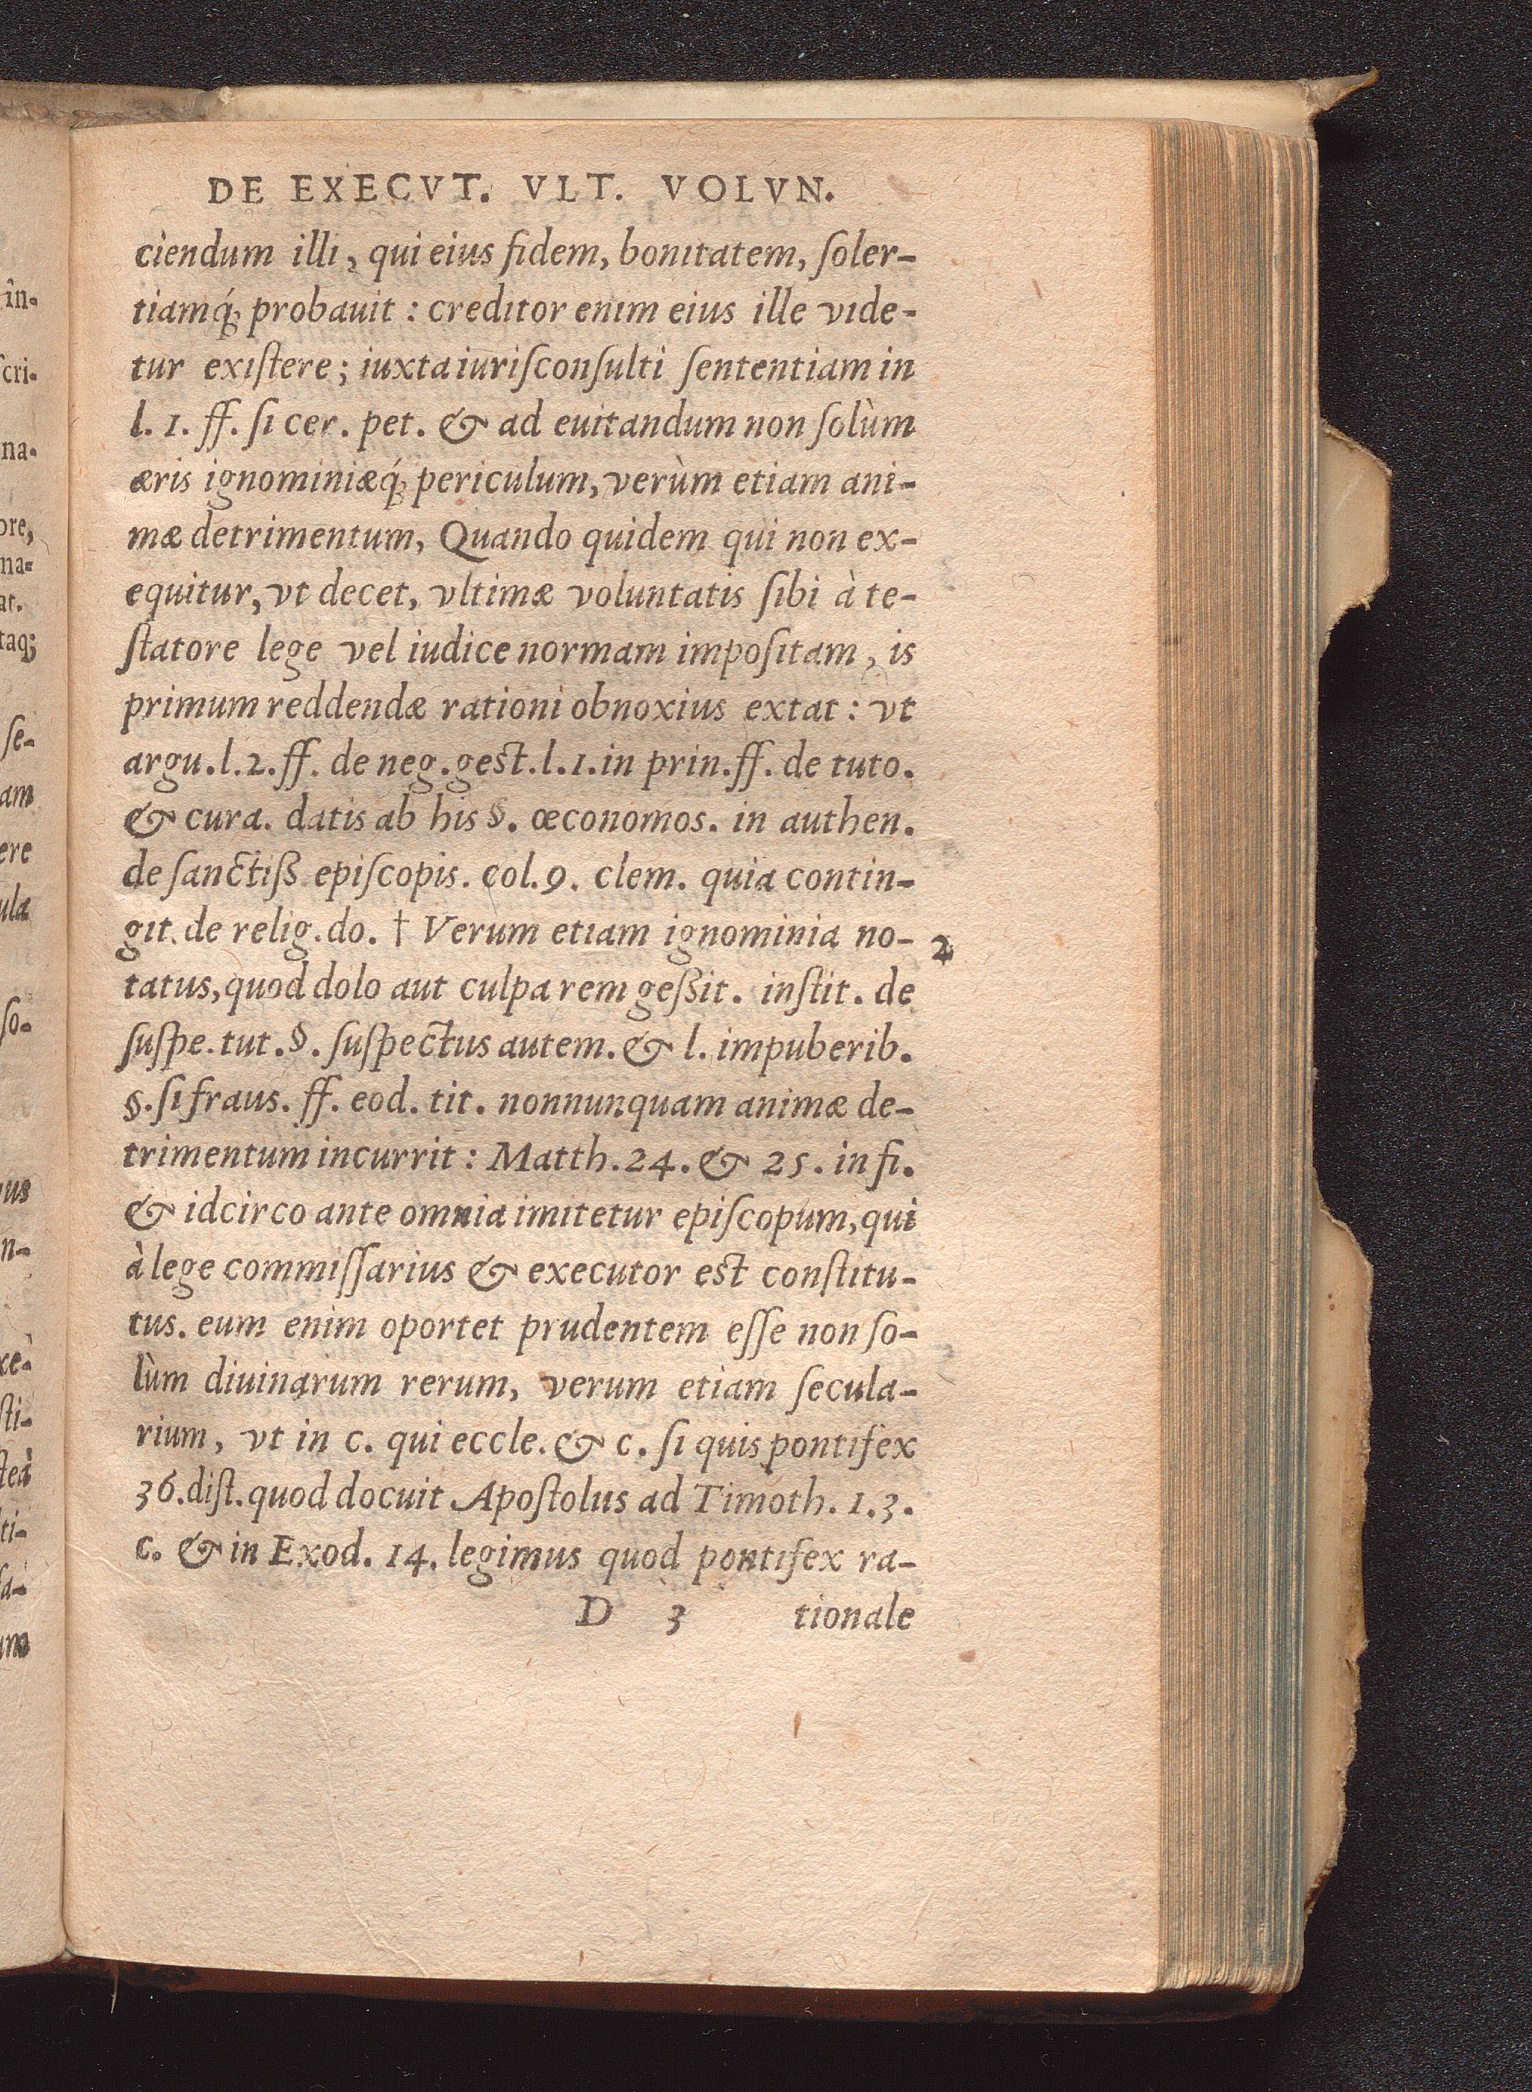 DE EXECVT. VLT. VOLVN.
ciendum illi, qui eius fidem, bonitatem, ſoler-
tiamq́; probauit : creditor enim eius ille vide-
tur exiſtere; iuxta iuriſconſulti ſententiam in
l. 1. ff. ſi cer. pet. & ad euitandum non ſolùm
æris ignominiæq́; periculum, verùm etiam ani-
mæ detrimentum, Quando quidem qui non ex-
equitur, vt decet, vltimæ voluntatis ſibi à te-
ſtatore lege vel iudice normam impoſitam, is
primum reddendæ rationi obnoxius extat : vt
argu. l. 2. ff. de neg. gest. l. 1. in prin. ff. de tuto.
& cura. datis ab his §. œconomos. in authen.
de ſanctiß epiſcopis. col. 9. clem. quia contin-
git. de relig. do. † Verum etiam ignominia no- 2
tatus, quod dolo aut culpa rem geßit. inſtit. de
ſuſpe. tut. §. ſuſpectus autem. & l. impuberib.
§. ſi fraus. ff. eod. tit. nonnunquam animæ de-
trimentum incurrit : Matth. 24. & 25. in fi.
& idcirco ante omnia imitetur epiſcopum, qui
à lege commiſſarius & executor est conſtitu-
tus. eum enim oportet prudentem eſſe non ſo-
lùm diuinarum rerum, verum etiam ſecula-
rium, vt in c. qui eccle. & c. ſi quis pontifex
36. diſt. quod docuit Apoſtolus ad Timoth. 1. 3.
c. & in Exod. 14. legimus quod pontifex ra-
D 3 tionale